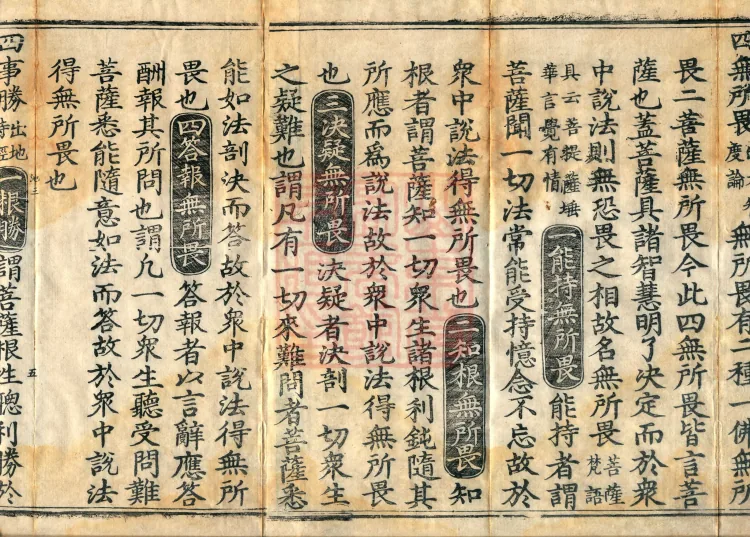 四無所畏出大智度論無所畏有二種一佛無所
畏二菩薩無所畏今此四無所畏皆言菩
薩也蓋菩薩具諸智慧明了决定而於衆
中說法則無恐畏之相故名無所畏菩薩梵語
具云菩提薩埵華言覺有情一能持無所畏能持者謂
菩薩聞一切法常能受持憶念不忘故於
衆中說法得無所畏也二知根無所畏知
根者謂菩薩知一切衆生諸根利鈍隨其
所應而爲說法故於衆中說法得無所畏
也三决疑無所畏决疑者决剖一切衆生
之疑難也謂凡有一切來難問者菩薩悉
能如法剖决而答故於衆中說法得無所
畏也四答報無所畏答報者以言辭應答
酬報其所問也謂凡一切衆生聽受問難
菩薩悉能隨意如法而答故於衆中說法
得無所畏也
五
四事勝出地持經一根勝謂菩薩根生聰利勝於